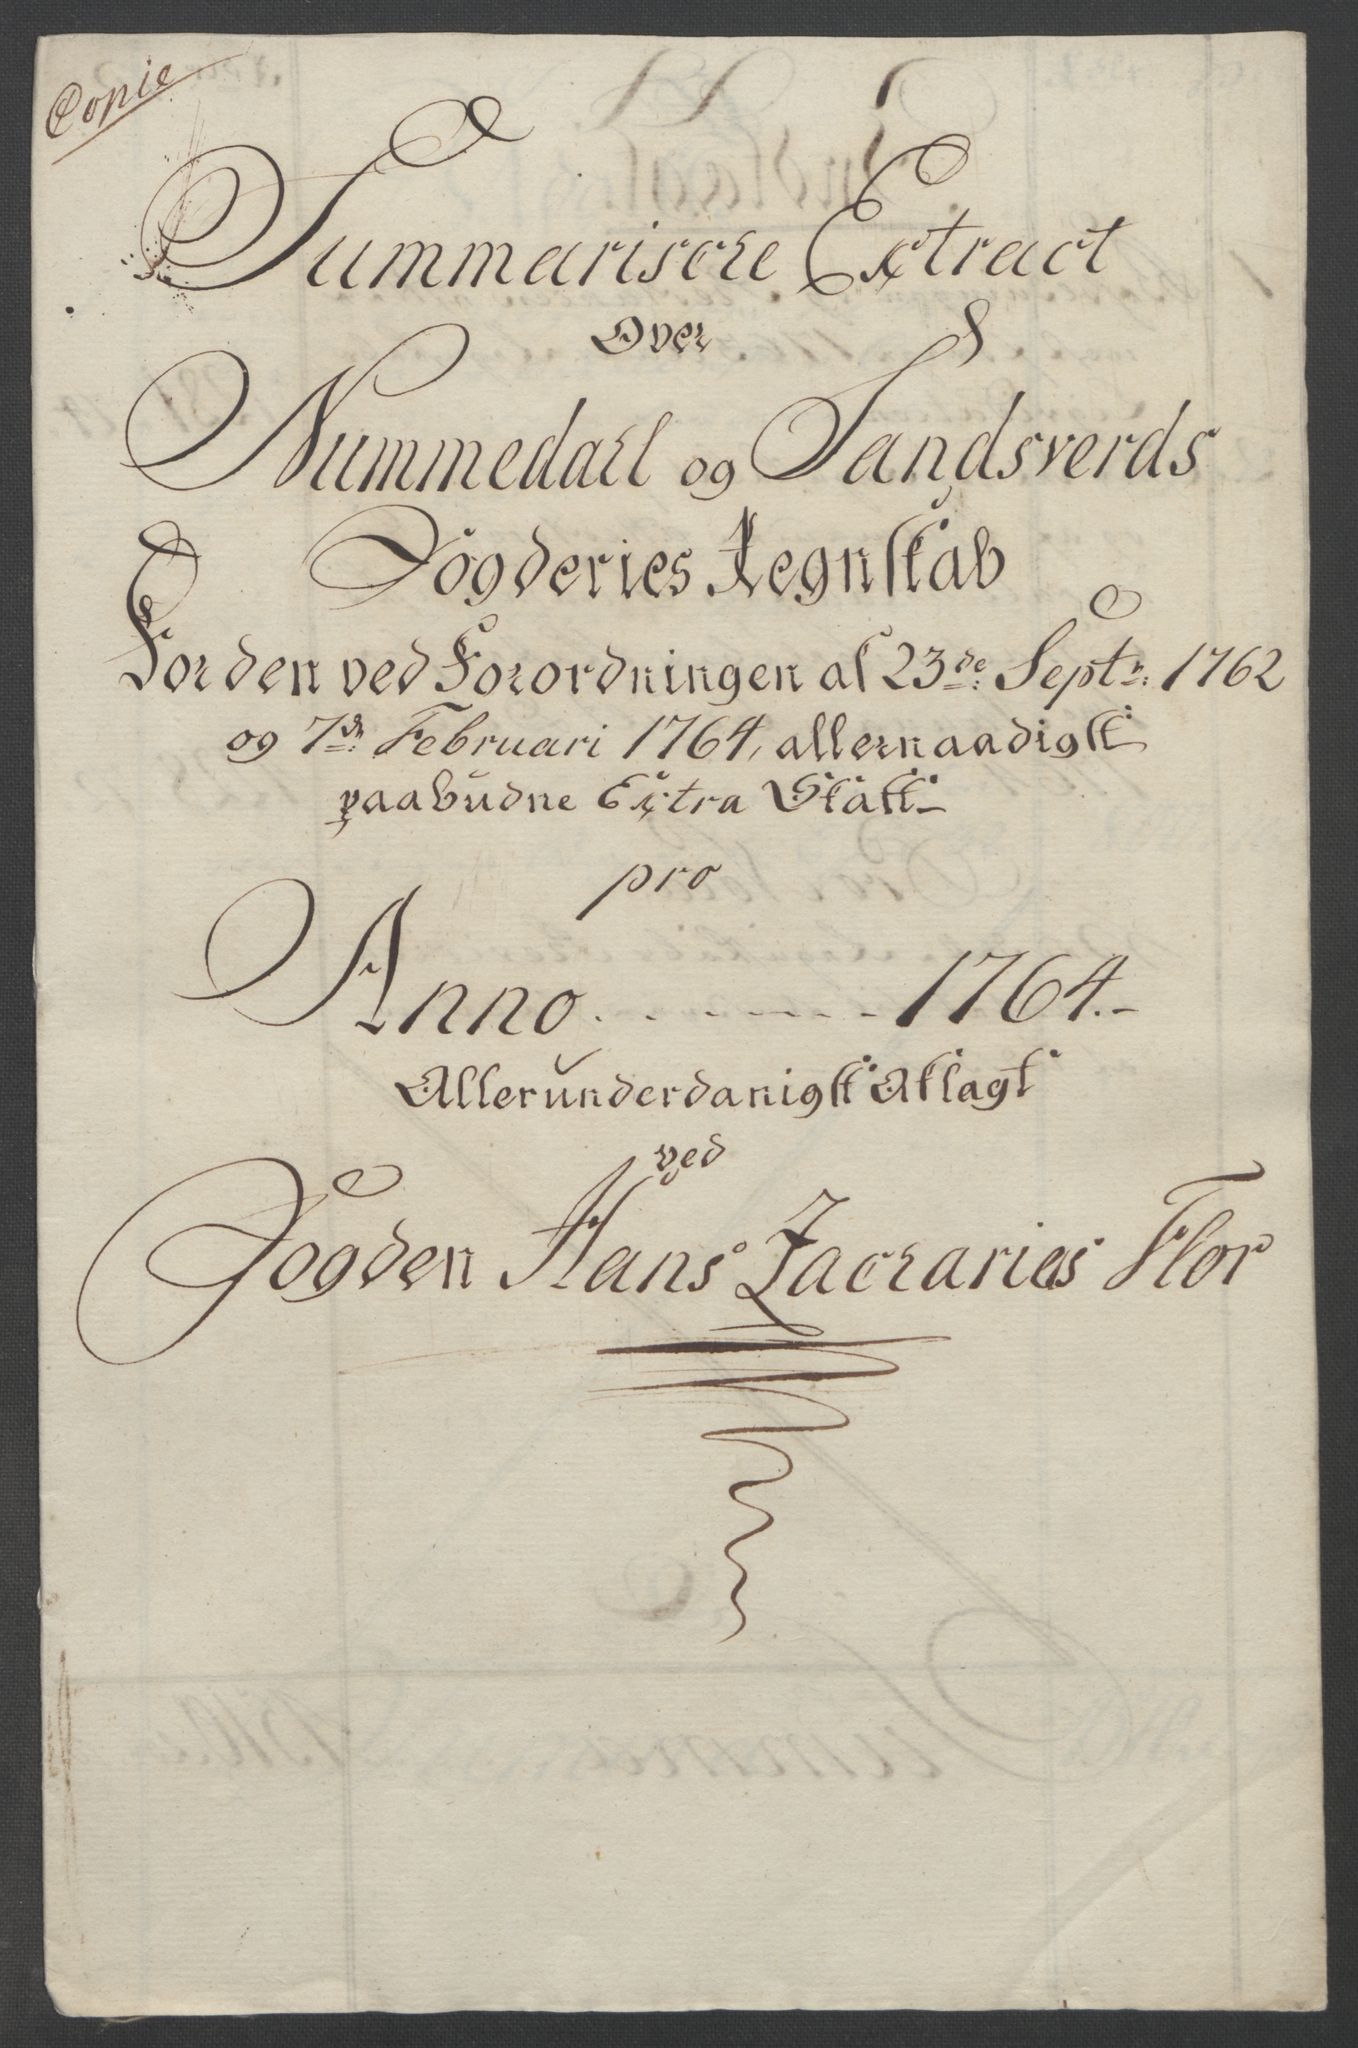 Copie
Summarische Extract
Over
Nummedahl og Sandsverds
Fogderies Regnskab
For den ved Forordningen af 23de Septr: 1762
og 7de Februari 1764, allernaadigst
paabudne Extra Skatt
pro
Anno . . . . . . . 1764.
Allerunderdanigst Aflagt
ved
Fogden Hans Zacharies Flor